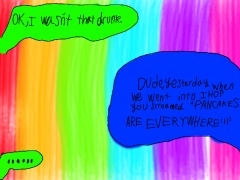 OK, I wasn't that drunk
Dude, Yesterday when
we went into IHOP
you screamed "PANCAKES
ARE EVERYWHERE!!!"
......